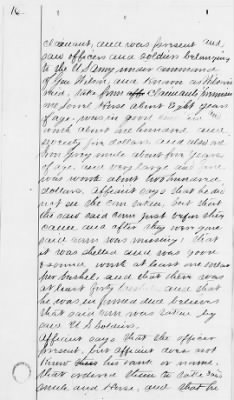 16
Claimant, and was present and
saw officers and soldiers belonging
to the U.S. Army under command
of Gen Wilson, and known as Wilson's
men, take from Samuel
one Sorrel Horse about Eight years
of age, was in good and
worth about one hundred and
seventy five dollars and also one
Iron Grey mule about five years
of age, and very large and
was worth about two hundred
dollars. Affiant says that he did
not see the corn taken, but that
he saw said corn just before they
came and after they were gone
said corn was missing: that
it was shelled and was good
corn worth at least one dollar
per bushel, and that there was
at least forty bushels, and that
he was informed and believes
that said corn was taken by
said U.S. Soldiers.
Affiant says that the officer
present, but affiant does not
know his rank or name,
that ordered them to take said
mule and Horse, and that he